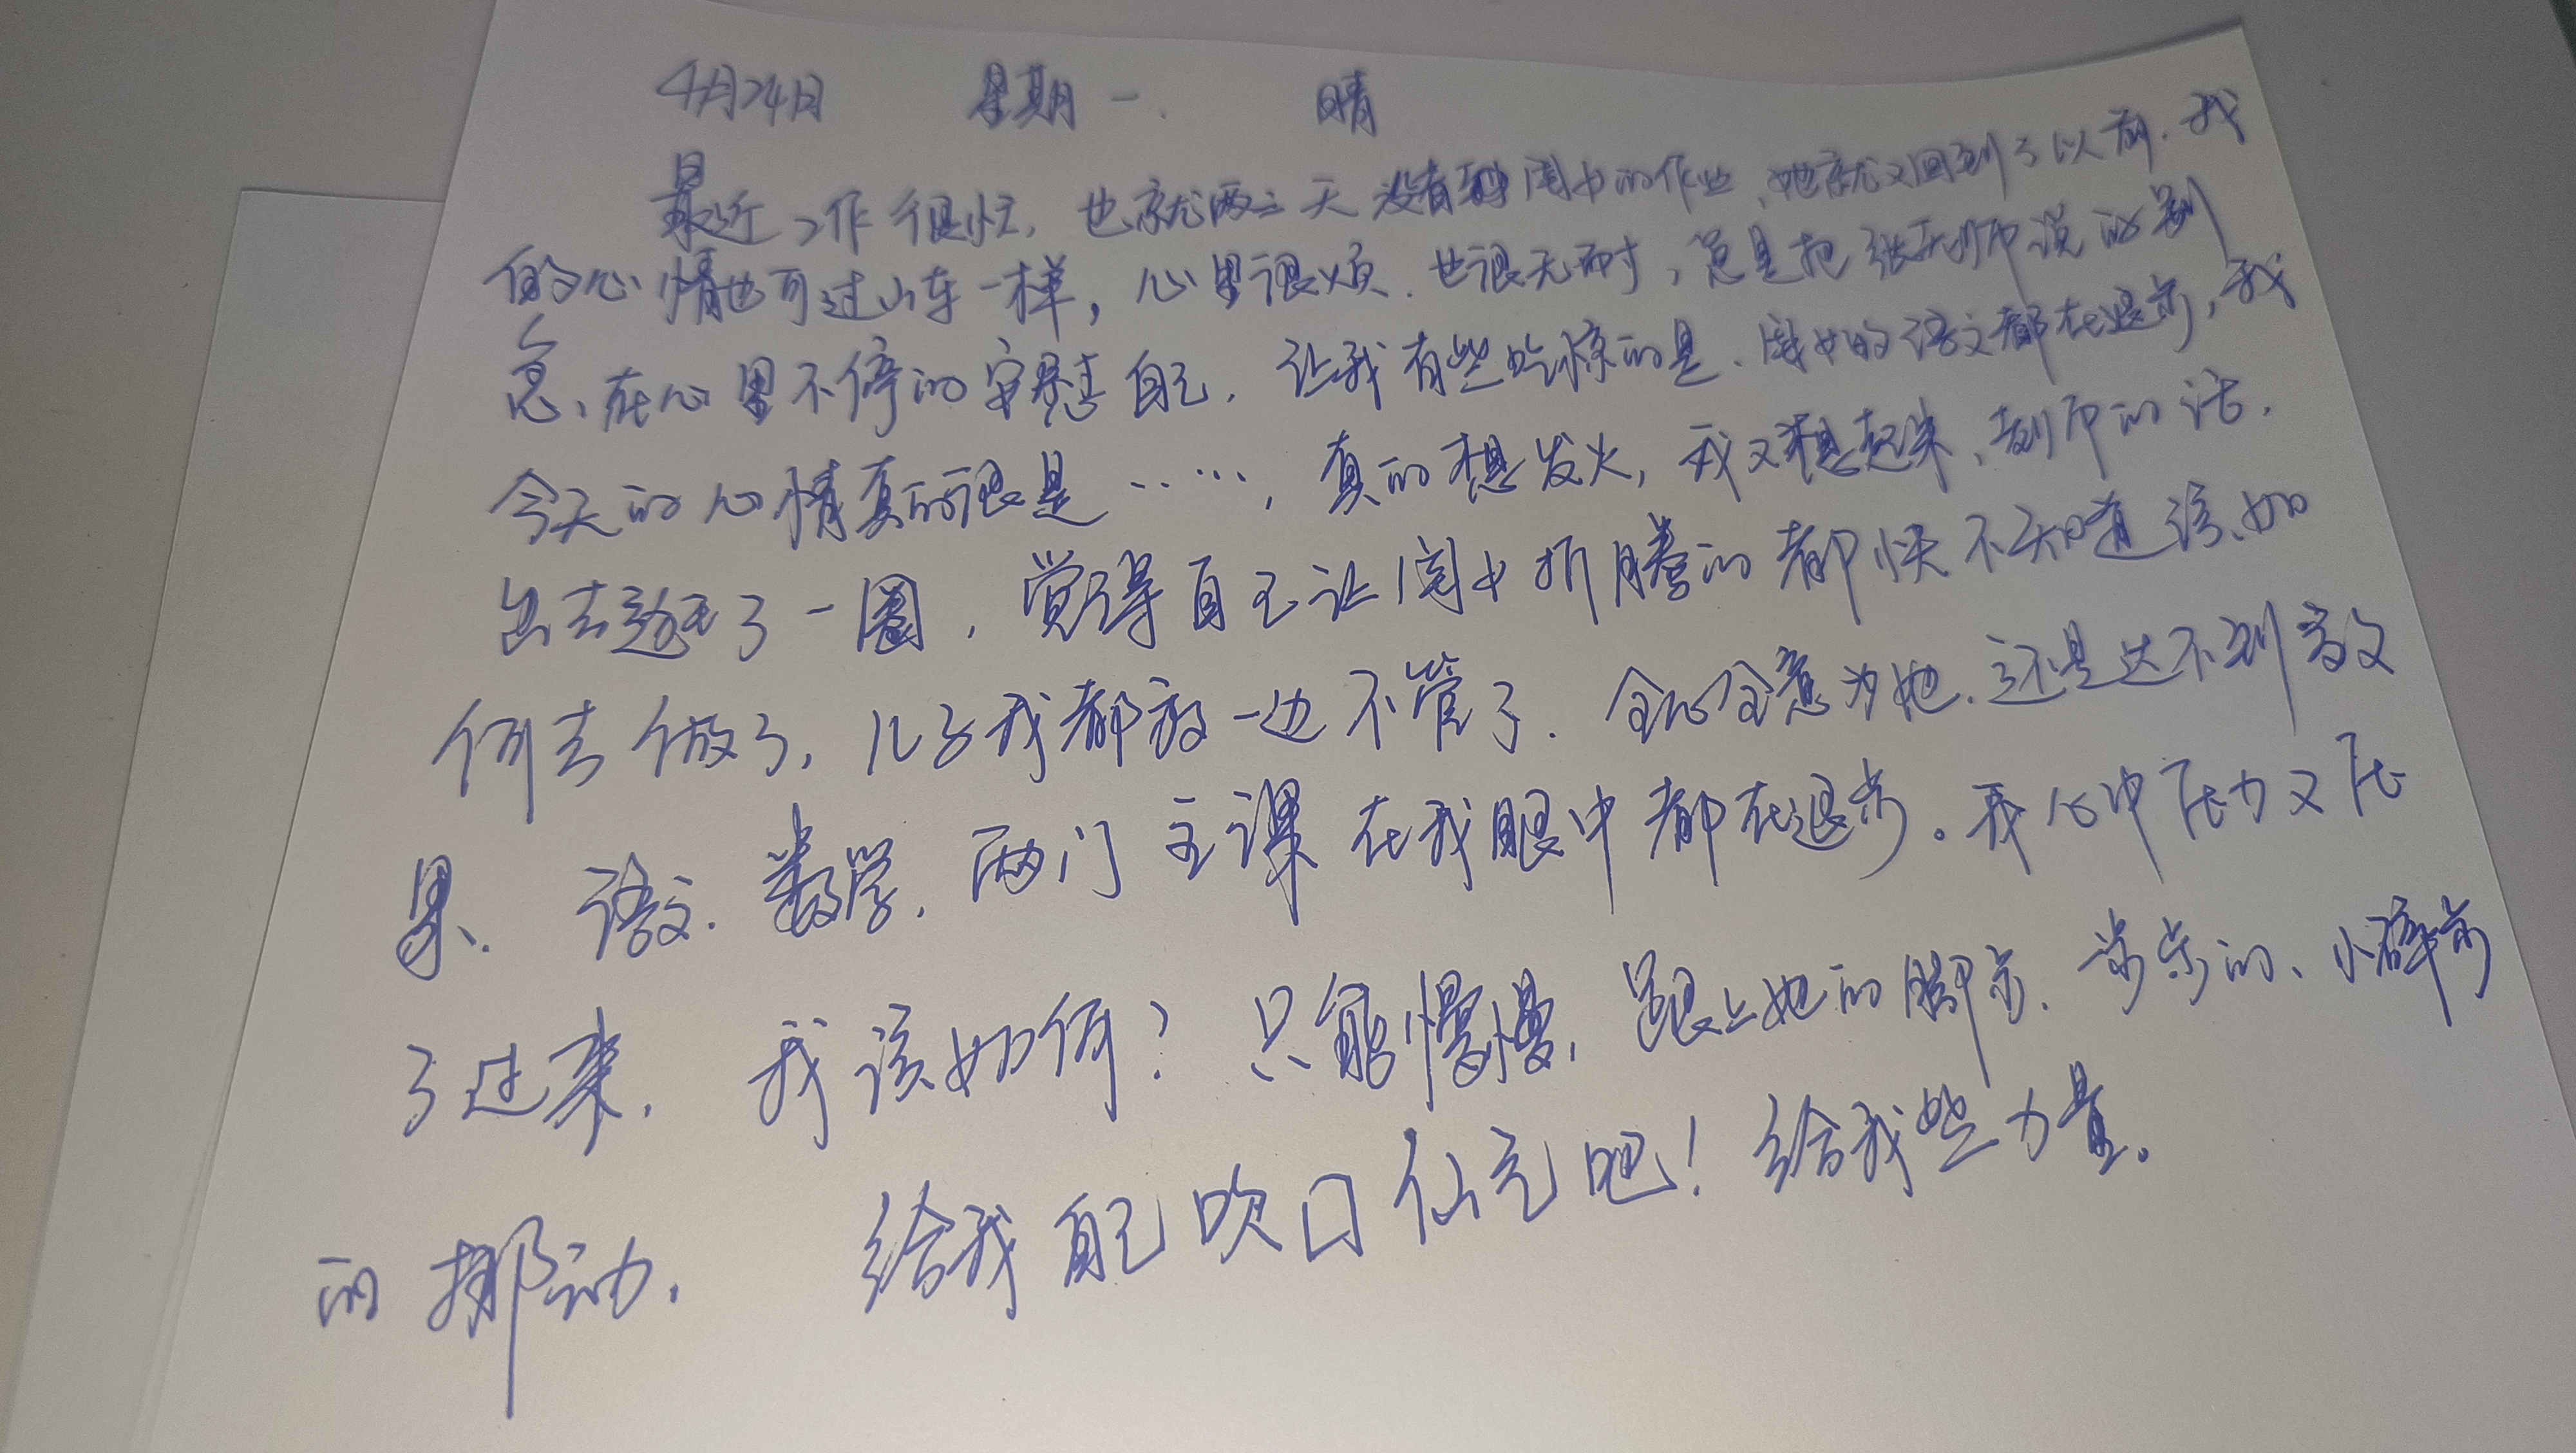 4月24日 星期一. 晴
最近工作很忙, 也就两三天没有 闺女的作业、她就又回到了以前. 我
的心情也可过山车一样, 心里很烦. 也很无耐, 总是把张老师说的别
急、在心里不停的安慰自己. 让我有些吃惊的是、闺女的语文都在退步, 我
今天的心情真的很是……, 真的想发火, 我又想起来、老师的话.
出去逛了一圈, 觉得自己让闺女折腾的都快不知道该如
何去做了, 儿子我都放一边不管了. 全心全意为她. 还是达不到效
果. 语文. 数学. 两门主课在我眼中都在退步。我心中压力又压
了过来. 我该如何? 只能慢慢, 跟上她的脚步、步步的、小碎步
的挪动. 给我自己吹口仙气吧! 给我些力量。